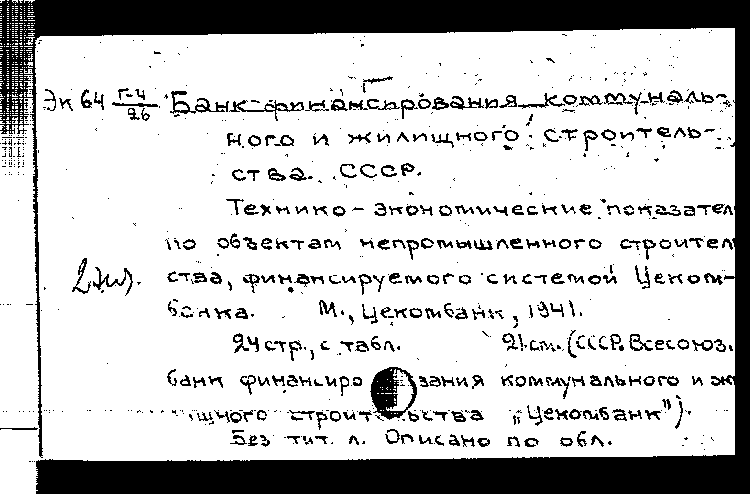 Эк 64 Г-4/26 Банк финансирования коммуналь-
ного и жилищного строитель-
ства. СССР.
Технико-экономические показател
по объектам непромышленного строител
2 экз. ства, финансируемого системой Цеком-
банка. М., Цекомбанк, 1941.
24 стр., с табл. 21 см. (СССР. Всесоюз.
банк финансиро вания коммунального и жи
ищного строит ьства „Цекомбанк").
Без тит. л. Описано по обл.